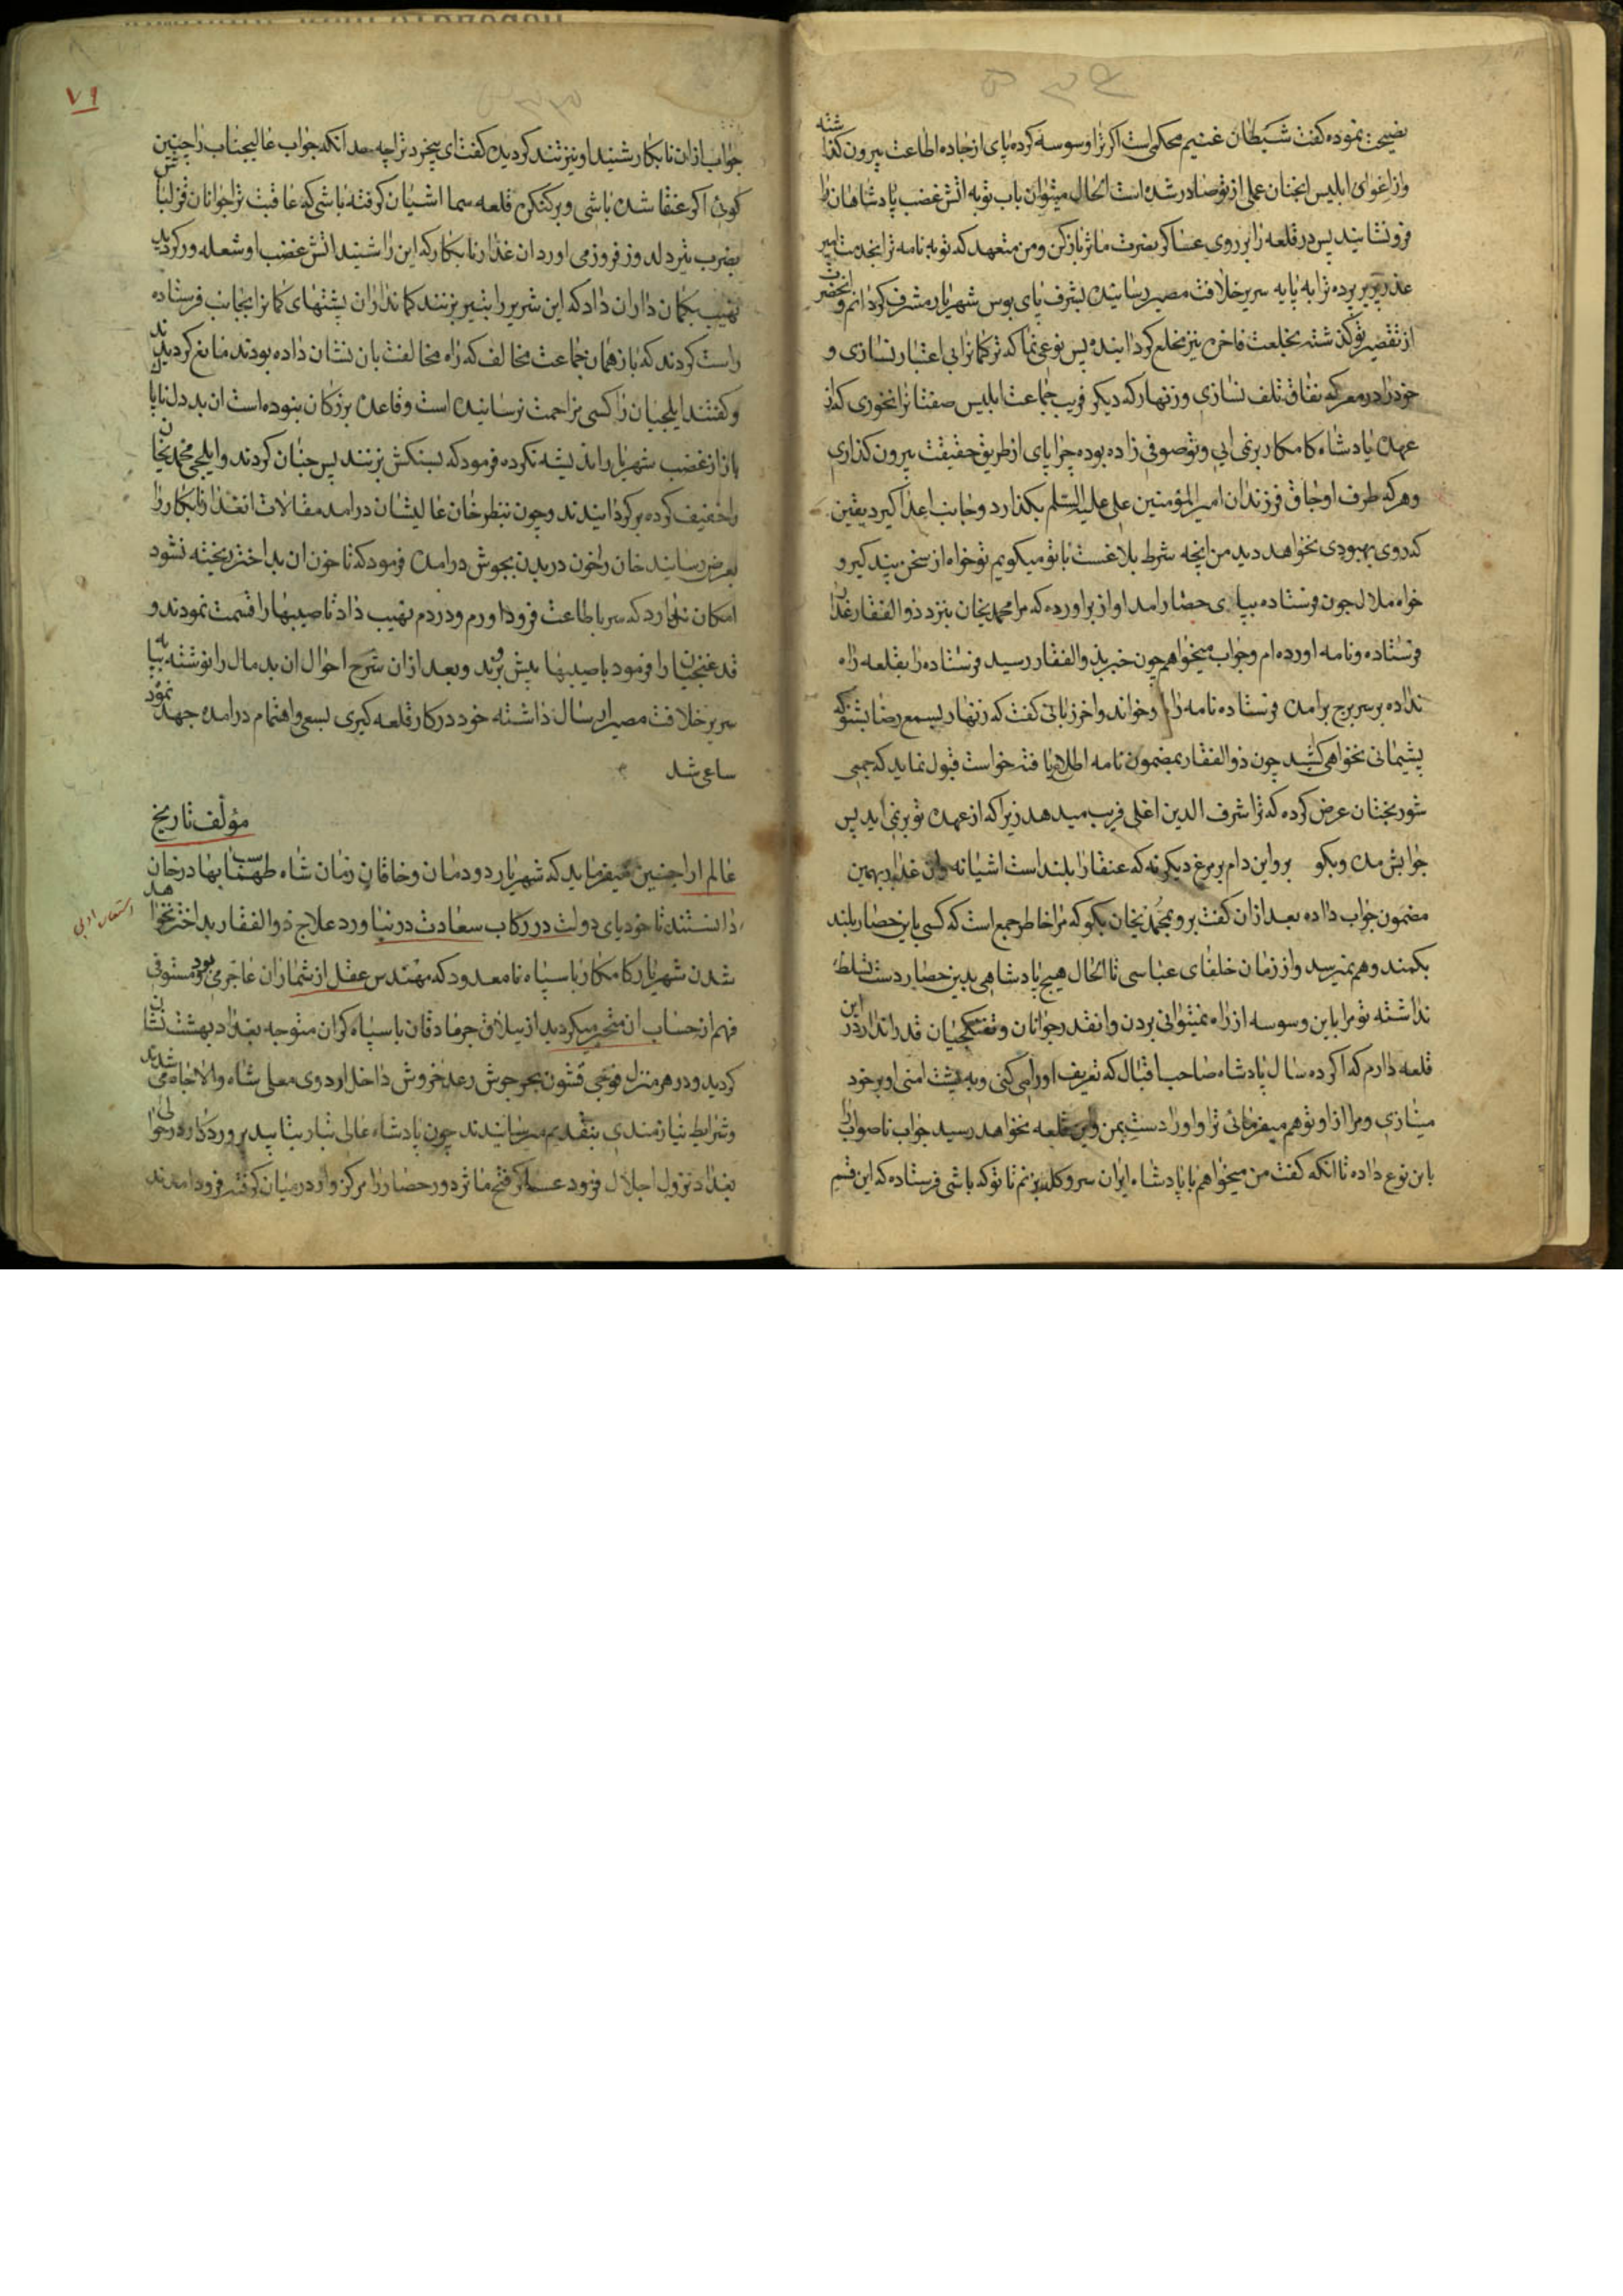 نصیحت نموده گفت شیطان غنیم محکمی است اکر ترا وسوسه کرده پای از جاده اطاعت بیرون کذاشته
واز اغوای ابلیس انچنان عملی از تو صادر شده است الحال میتوان باب توبه اتش غضب پادشاهان را
فرو نشانید پس در قلعه را بر روی عساکر نصرت ماثر باز کن ومن متعهد که توبه نامه ترا بخدمت امیر
عذرپذیر برده ترا به پایه سریر خلافت مصیر رسانیده بشرف پای بوس شهریار مشرف کردانم وانحضرت
از تقصیر تو کذشته بخلعت فاخره نیز مخلع کردانیده پس نوعی نما که ترکمانرا بی اعتبار نسازی و
خود را در معرکه نفاق تلف نسازی وزنهار که دیکر فریب جماعت ابلیس صفتانرا نخوری که از
عهده پادشاه کامکار بر نمی ایی وتو صوفی زاده بوده چرا پای از طریق حقیقت بیرون کذاری
وهر که طرف اوجاق فرزندان امیرالمؤمنین علی علیه السلم بکذارد وجانب اعدا کیرد یقین
که روی بهبودی نخواهد دید من انچه شرط بلاغست با تو میکویم تو خواه از سخن پند کیر و
خواه ملال چون فرستاده بپای حصار امد اواز براورده که مرا محمدیخان بنزد ذوالفقار غدار
فرستاده ونامه اورده ام وجواب میخواهم چون خبر بذوالفقار رسید فرستاده را بقلعه راه
نداده بر سر برج برامده فرستاده نامه را وخواند واخر زبانی گفت که زنهار بسمع رضا بشنو که
پشیمانی نخواهی کشید چون ذوالفقار بمضمون نامه اطلاع یافته خواست قبول نماید که جمعی
شوربختان عرض کرده که ترا شرف الدین اغلی فریب میدهد زیرا که از عهده تو بر نمی اید پس
جوابش مده وبکو برو این دام بر مرغ دیکر نه که عنقا را بلند است اشیانه وان غدار بهمین
مضمون جواب داده بعد از ان گفت برو بمحمدیخان بکو که مرا خاطر جمع است که کسی باین حصار بلند
بکمند وهم نمیرسد واز زمان خلفای عباسی تا الحال هیچ پادشاهی بدین حصار دست تسلط
نداشته تو مرا باین وسوسه از راه نمیتوانی بردن وانقدر جوانان وتفنکچیان قدرانداز در این
قلعه دارم که اکر ده سال پادشاه صاحب اقبال که تعریف او را می کنی وبه پشت امنی او بر خود
مینازی ومرا از او توهم میفرمائی ترا واورا دست بمن واین قلعه نخواهد رسید جواب ناصواب را
باین نوع داده تا انکه گفت من میخواهم با پادشاه ایران سر وکله بزنم تا تو که باشی فرستاده که این قسم
۷۱
جواب از ان نابکار شنید او نیز تند کردیده گفت ای بیخرد ترا چه حد انکه جواب عالیجناب را چنین
کوئی اکر عنقا شده باشی وبر کنکره قلعه سما اشیان کرفته باشی که عاقبت ترا جوانان قزلباش
بضرب تیر دلدوز فرو می اوردان غدار نابکار که این را شنید اتش غضب او شعله ور کردید
نهیب بکمان داران داد که این شریر را بتیر بزنند کمانداران پشتهای کمانرا بجانب فرستاده
راست کردند که باز همان جماعت مخالف که راه مخالفت بان نشان داده بودند مانع کردیدند
وکفتند ایلچیان را کسی مزاحمت نرسانیده است وقاعده بزرکان نبوده است ان بد دل ناپاک
باز از غضب شهریار اندیشه نکرده فرمود که بسنکش بزنند پس چنان کردند وایلچی محمدیخان
را خفیف کرده بر کردانیدند وچون بنظر خان عالیشان درامد مقالات انغدار نابکار را
بعرض رسانید خان را خون در بدن بجوش درامده فرمود که تا خون ان بداختر ریخته نشود
امکان ندارد که سر باطاعت فرود اورم ودر دم نهیب داد تا صیبها را قسمت نمودند و
قدغنچیان را فرمود با صیبها پیش روند وبعد از ان شرح احوال ان بدمال را نوشته بپایه
سریر خلافت مصیر ارسال داشته خود در کار قلعه کیری بسعی واهتمام درامده جهد نمود
ساعی شد
مؤلف تاریخ
عالم ارا چنین میفرماید که شهریار دودمان وخاقان زمان شاه طهماسب بهادرخان
دانستند تا خود پای دولت در رکاب سعادت در نیاورد علاج ذوالفقار بداختر نخواهد
شدن شهریار کامکار با سپاه نامعدود که مهندس عقل از شماران عاجز می بود ومستوفی
فهم از حساب ان متحیر میکردید از ییلاق جرمادقان با سپاه کران متوجه بغداد بهشت نشان
کردید ودر هر منزل فوجی قشون بحر جوش رعد خروش داخل اردوی معلی شاه والاجاه می شدند
وشرایط نیازمندی بتقدیم میرسانیدند چون پادشاه عالی تبار بتایید پروردکار در حوالی
بغداد نزول اجلال فرمود عساکر فتح ماثر دور حصار را مرکز وار در میان کرفته فرود امدند